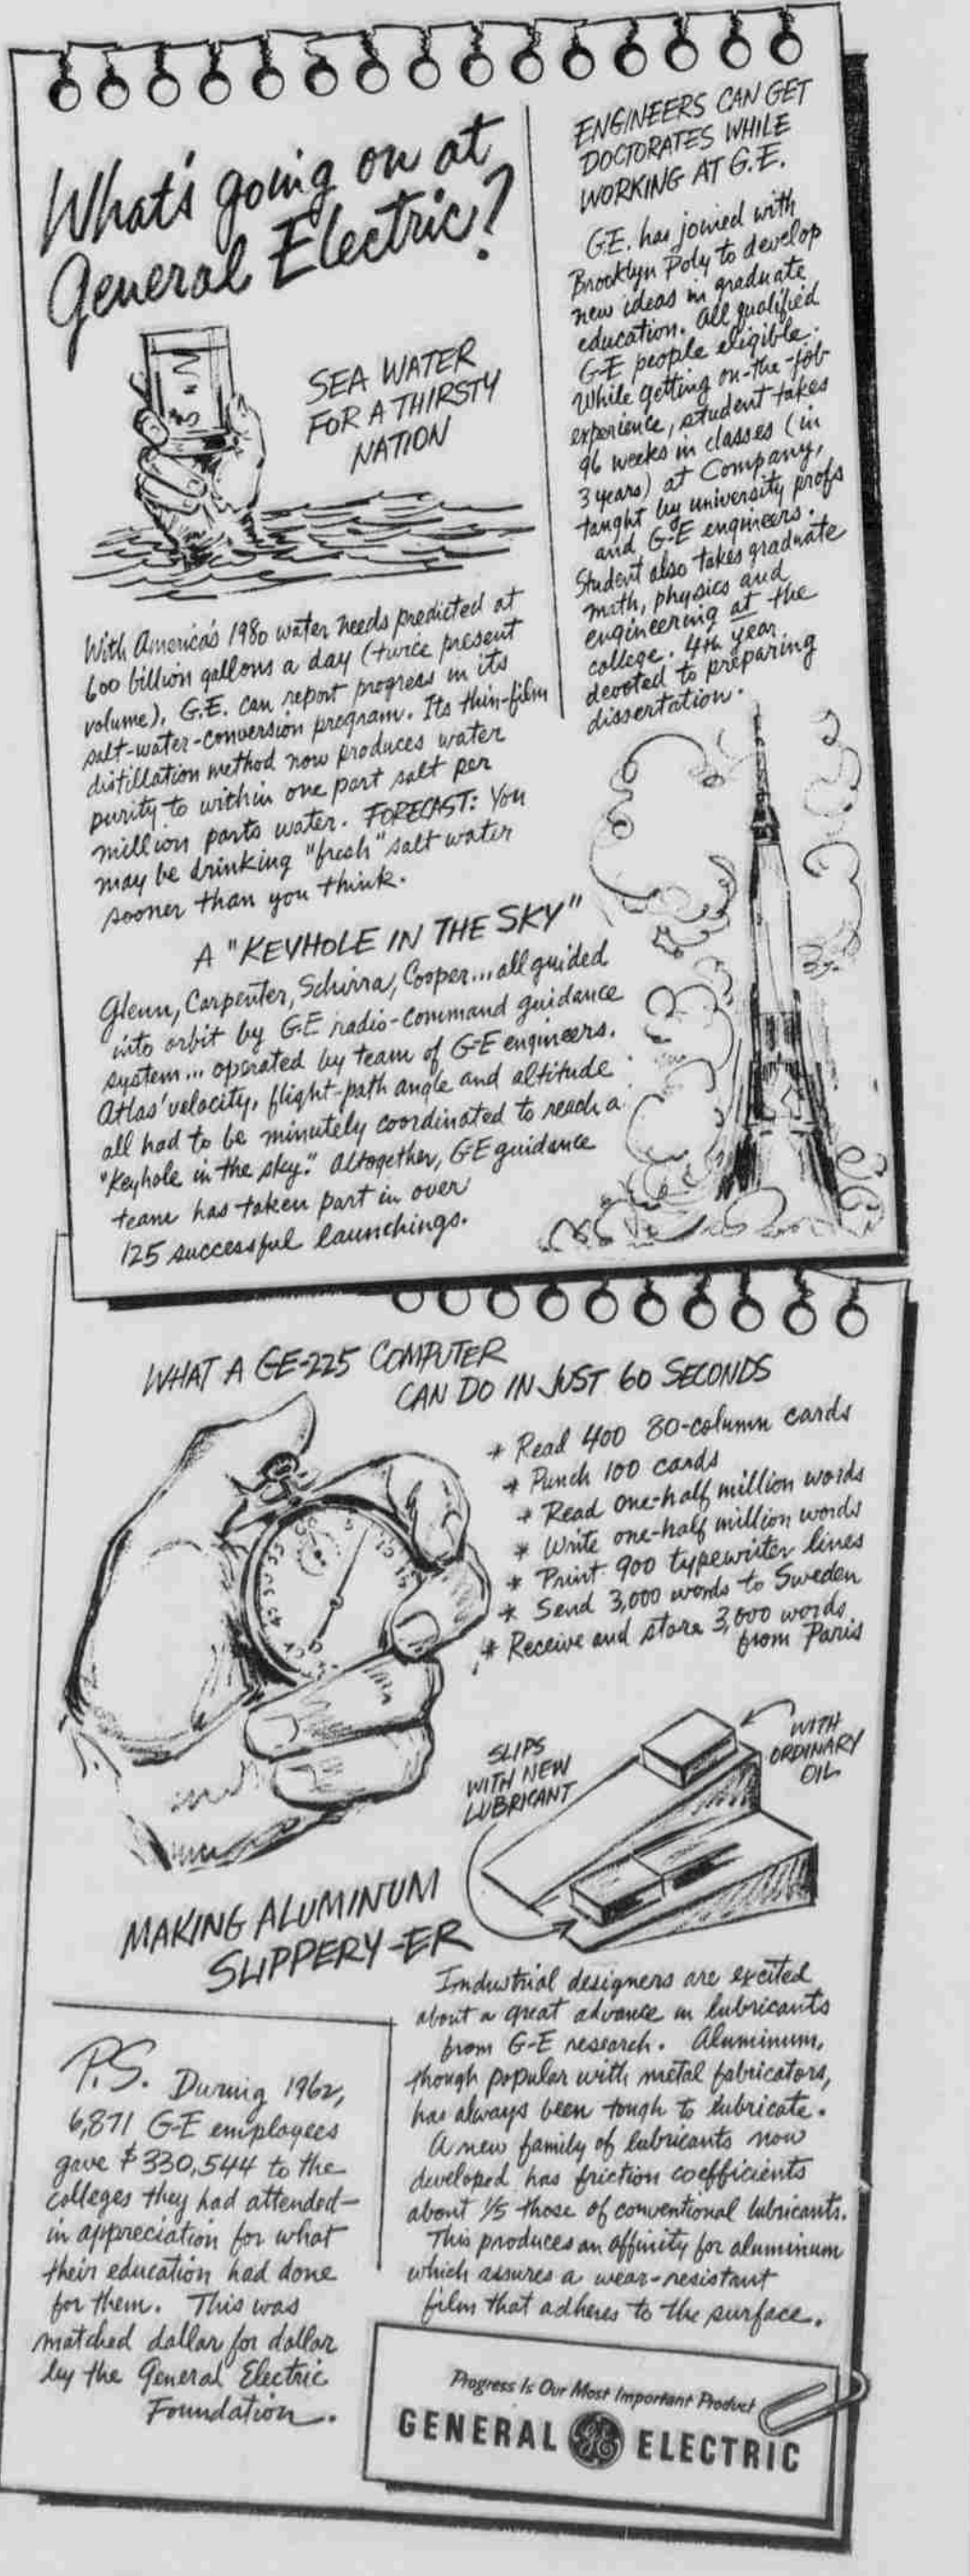 What's going on at
General Electric?
SEA WATER
FOR A THIRSTY
NATION
With America's 1980 water needs predicted at
600 billion gallons a day (twice present
volume), G.E. can report progress in its
salt-water-conversion program. Its thin-film
distillation method now produces water
purity to within one part salt per
million parts water. FORECAST: You
may be drinking "fresh" salt water
sooner than you think.
ENGINEERS CAN GET
DOCTORATES WHILE
WORKING AT G.E.
G.E. has joined with
Brooklyn Poly to develop
new ideas in graduate
education. All qualified
G-E people eligible.
While getting on-the-job
experience, student takes
96 weeks in classes (in
3 years) at Company,
taught by university profs
and G-E engineers.
Student also takes graduate
math, physics and
engineering at the
college. 4th year
devoted to preparing
dissertation.
A "KEYHOLE IN THE SKY"
Glenn, Carpenter, Schirra, Cooper... all guided
into orbit by G.E radio-command guidance
system... operated by team of G-E engineers.
Atlas' velocity, flight-path angle and altitude
all had to be minutely coordinated to reach a
"Keyhole in the sky." Altogether, G-E guidance
team has taken part in over
125 successful launchings.
WHAT A GE-225 COMPUTER
CAN DO IN JUST 60 SECONDS
* Read 400 80-column cards
* Punch 100 cards
* Read one-half million words
* Write one-half million words
* Print 900 typewriter lines
* Send 3,000 words to Sweden
* Receive and store 3,000 words
from Paris
SLIPS
WITH NEW
LUBRICANT
WITH
ORDINARY
OIL
MAKING ALUMINUM
SLIPPERY-ER
Industrial designers are excited
about a great advance in lubricants
from G-E research. Aluminum,
though popular with metal fabricators,
has always been tough to lubricate.
A new family of lubricants now
developed has friction coefficients
about 1/5 those of conventional lubricants.
This produces an affinity for aluminum
which assures a wear-resistant
film that adheres to the surface.
P.S. During 1962,
6,871 G-E employees
gave $330,544 to the
colleges they had attended—
in appreciation for what
their education had done
for them. This was
matched dollar for dollar
by the General Electric
Foundation.
Progress Is Our Most Important Product
GENERAL GE ELECTRIC